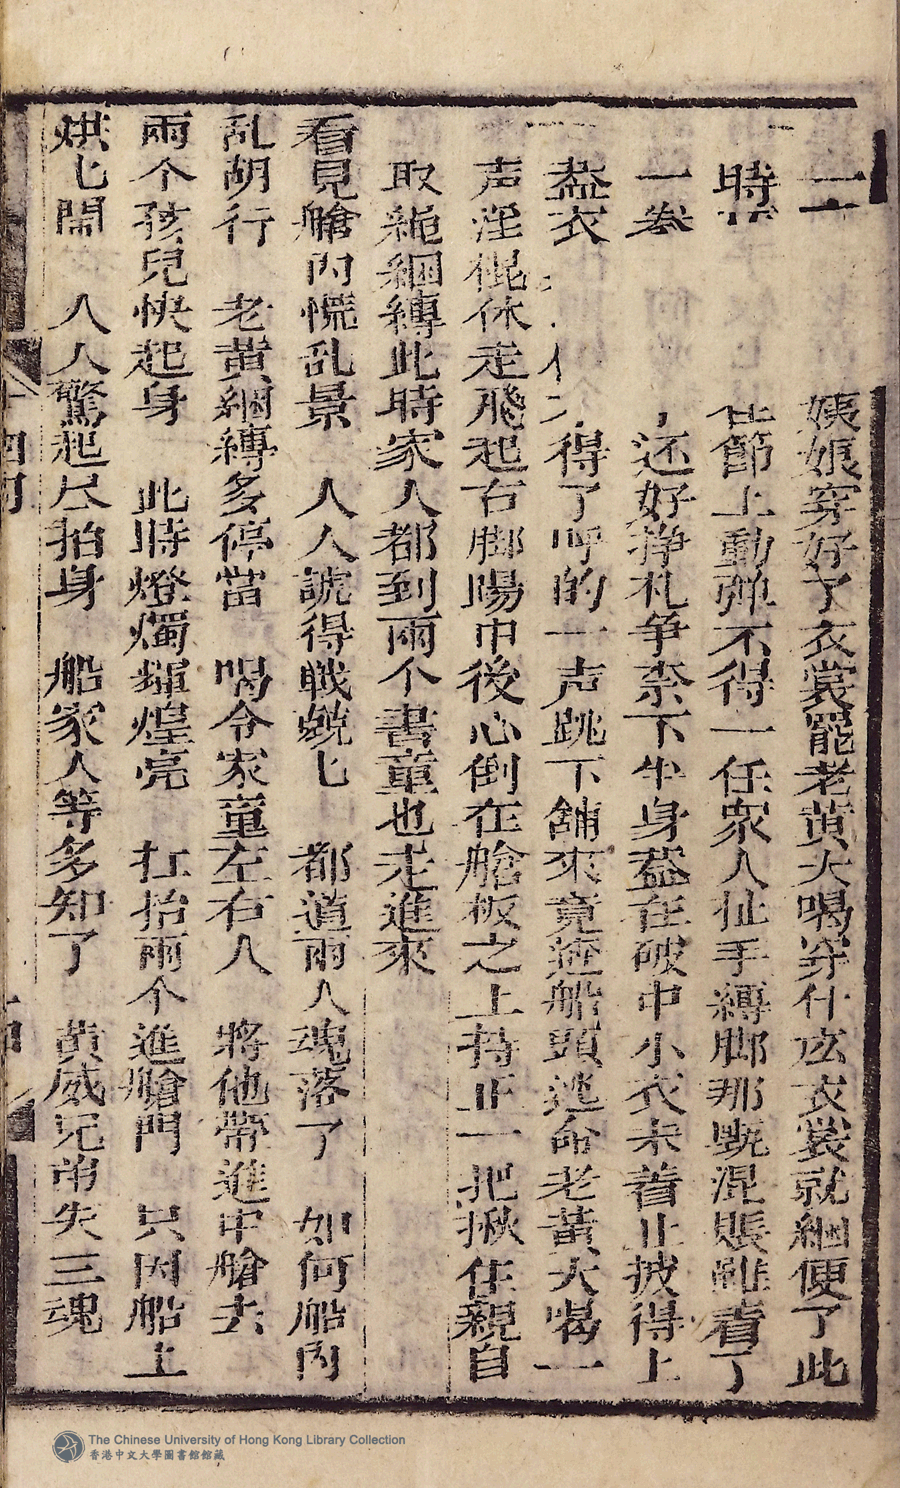 姨娘穿好了衣裳罷老黄大喝穿什庅衣裳就綑便了此
時 節上動弹不得一任衆人扯手縛脚那晄混賬雖看了
一卷 还好挣札争柰下半身葢在破中小衣未着止披得上
葢衣 得了呼的一声跳下舖來竟逕船頭逃命老黄大喝一
声淫棍休走飛起右脚陽中後心倒在艙板之上持正一把揪住親自
取䋲綑縛此時家人都到兩个書童也走進來
看見艙内慌乱景 人人諕得戰兢七 都道兩人魂落了 如何船内
乱胡行 老黄綑縛多停當 喝令家童左右人 將他帶進中艙去
兩个孩兒快起身 此時燈燭輝煌亮 扛抬兩个進艙門 只因船上
烘七鬧 人人驚起尽抬身 船家人等多知了 黄威兄弟失三魂
The Chinese University of Hong Kong Library Collection
香港中文大學圖書館館藏